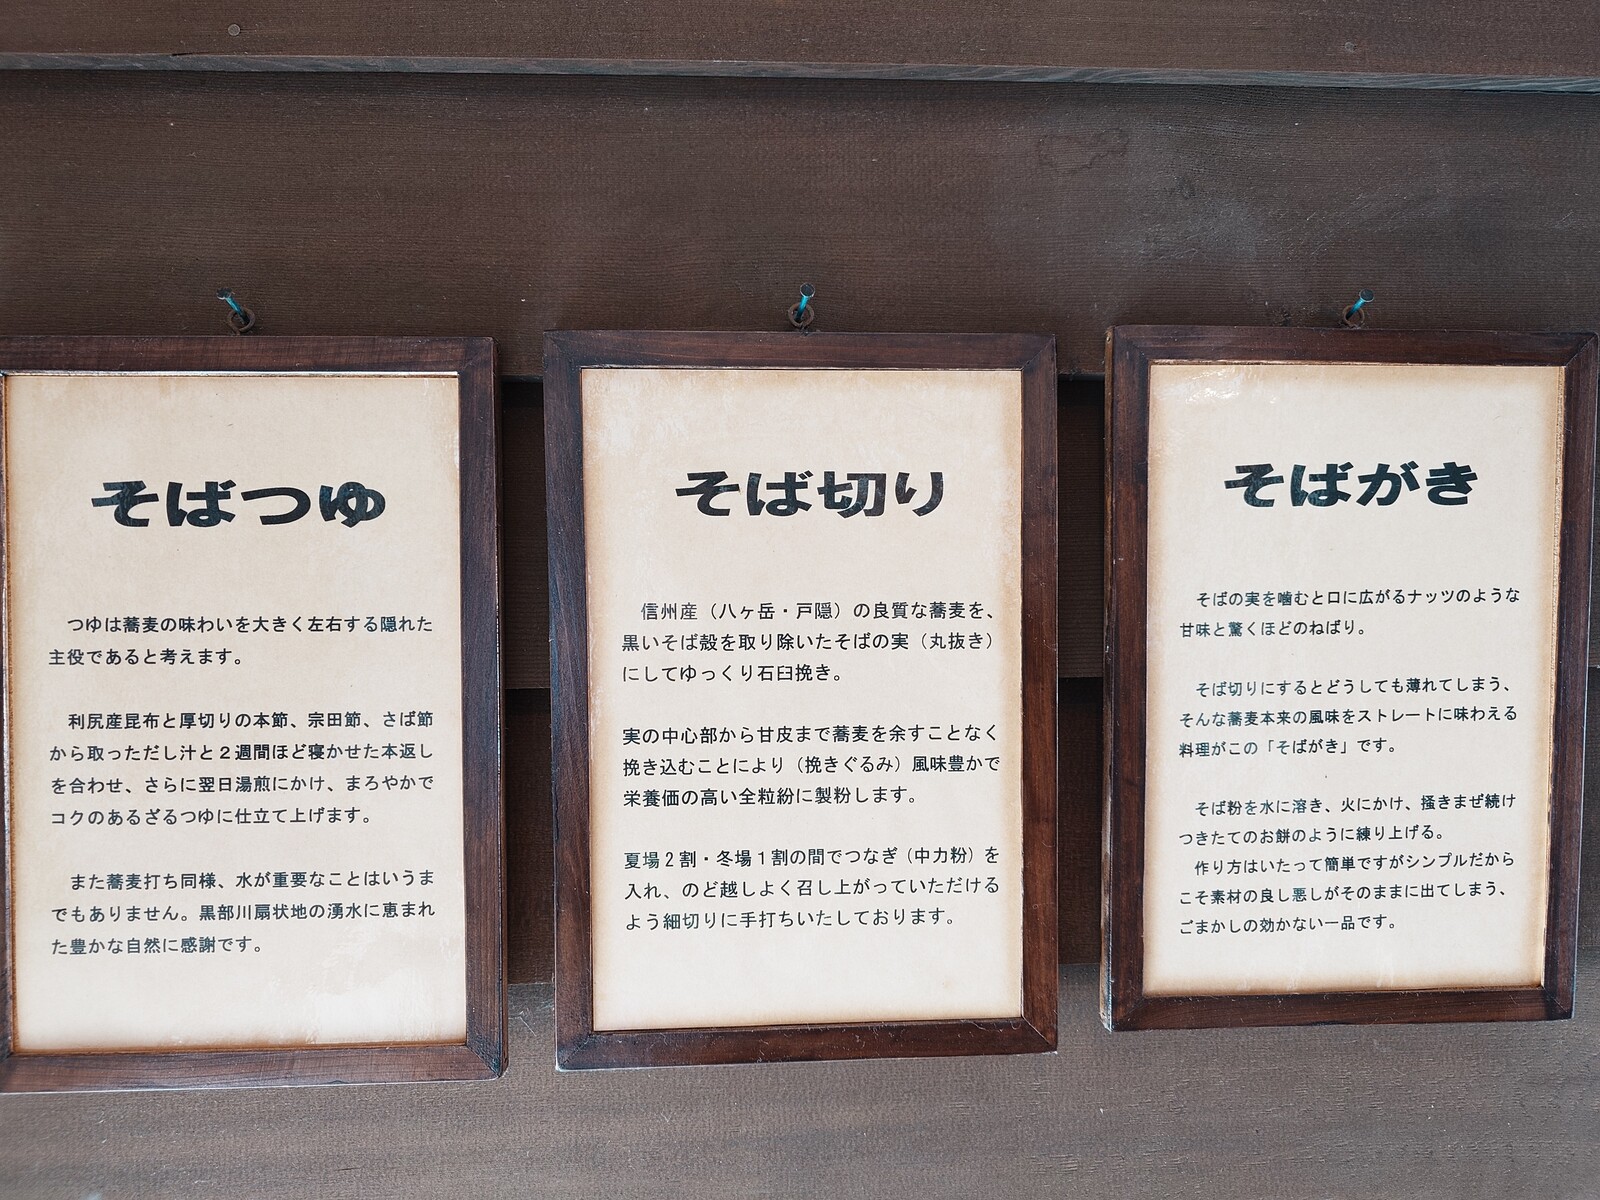 そばつゆ
つゆは蕎麦の味わいを大きく左右する隠れた
主役であると考えます。
利尻産昆布と厚切りの本節、宗田節、さば節
から取っただし汁と２週間ほど寝かせた本返し
を合わせ、さらに翌日湯煎にかけ、まろやかで
コクのあるざるつゆに仕立て上げます。
また蕎麦打ち同様、水が重要なことはいうま
でもありません。黒部川扇状地の湧水に恵まれ
た豊かな自然に感謝です。
そば切り
信州産（八ヶ岳・戸隠）の良質な蕎麦を、
黒いそば殻を取り除いたそばの実（丸抜き）
にしてゆっくり石臼挽き。
実の中心部から甘皮まで蕎麦を余すことなく
挽き込むことにより（挽きぐるみ）風味豊かで
栄養価の高い全粒紛に製粉します。
夏場２割・冬場１割の間でつなぎ（中力粉）を
入れ、のど越しよく召し上がっていただける
よう細切りに手打ちいたしております。
そばがき
そばの実を噛むと口に広がるナッツのような
甘味と驚くほどのねばり。
そば切りにするとどうしても薄れてしまう、
そんな蕎麦本来の風味をストレートに味わえる
料理がこの「そばがき」です。
そば粉を水に溶き、火にかけ、掻きまぜ続け
つきたてのお餅のように練り上げる。
作り方はいたって簡単ですがシンプルだから
こそ素材の良し悪しがそのままに出てしまう、
ごまかしの効かない一品です。